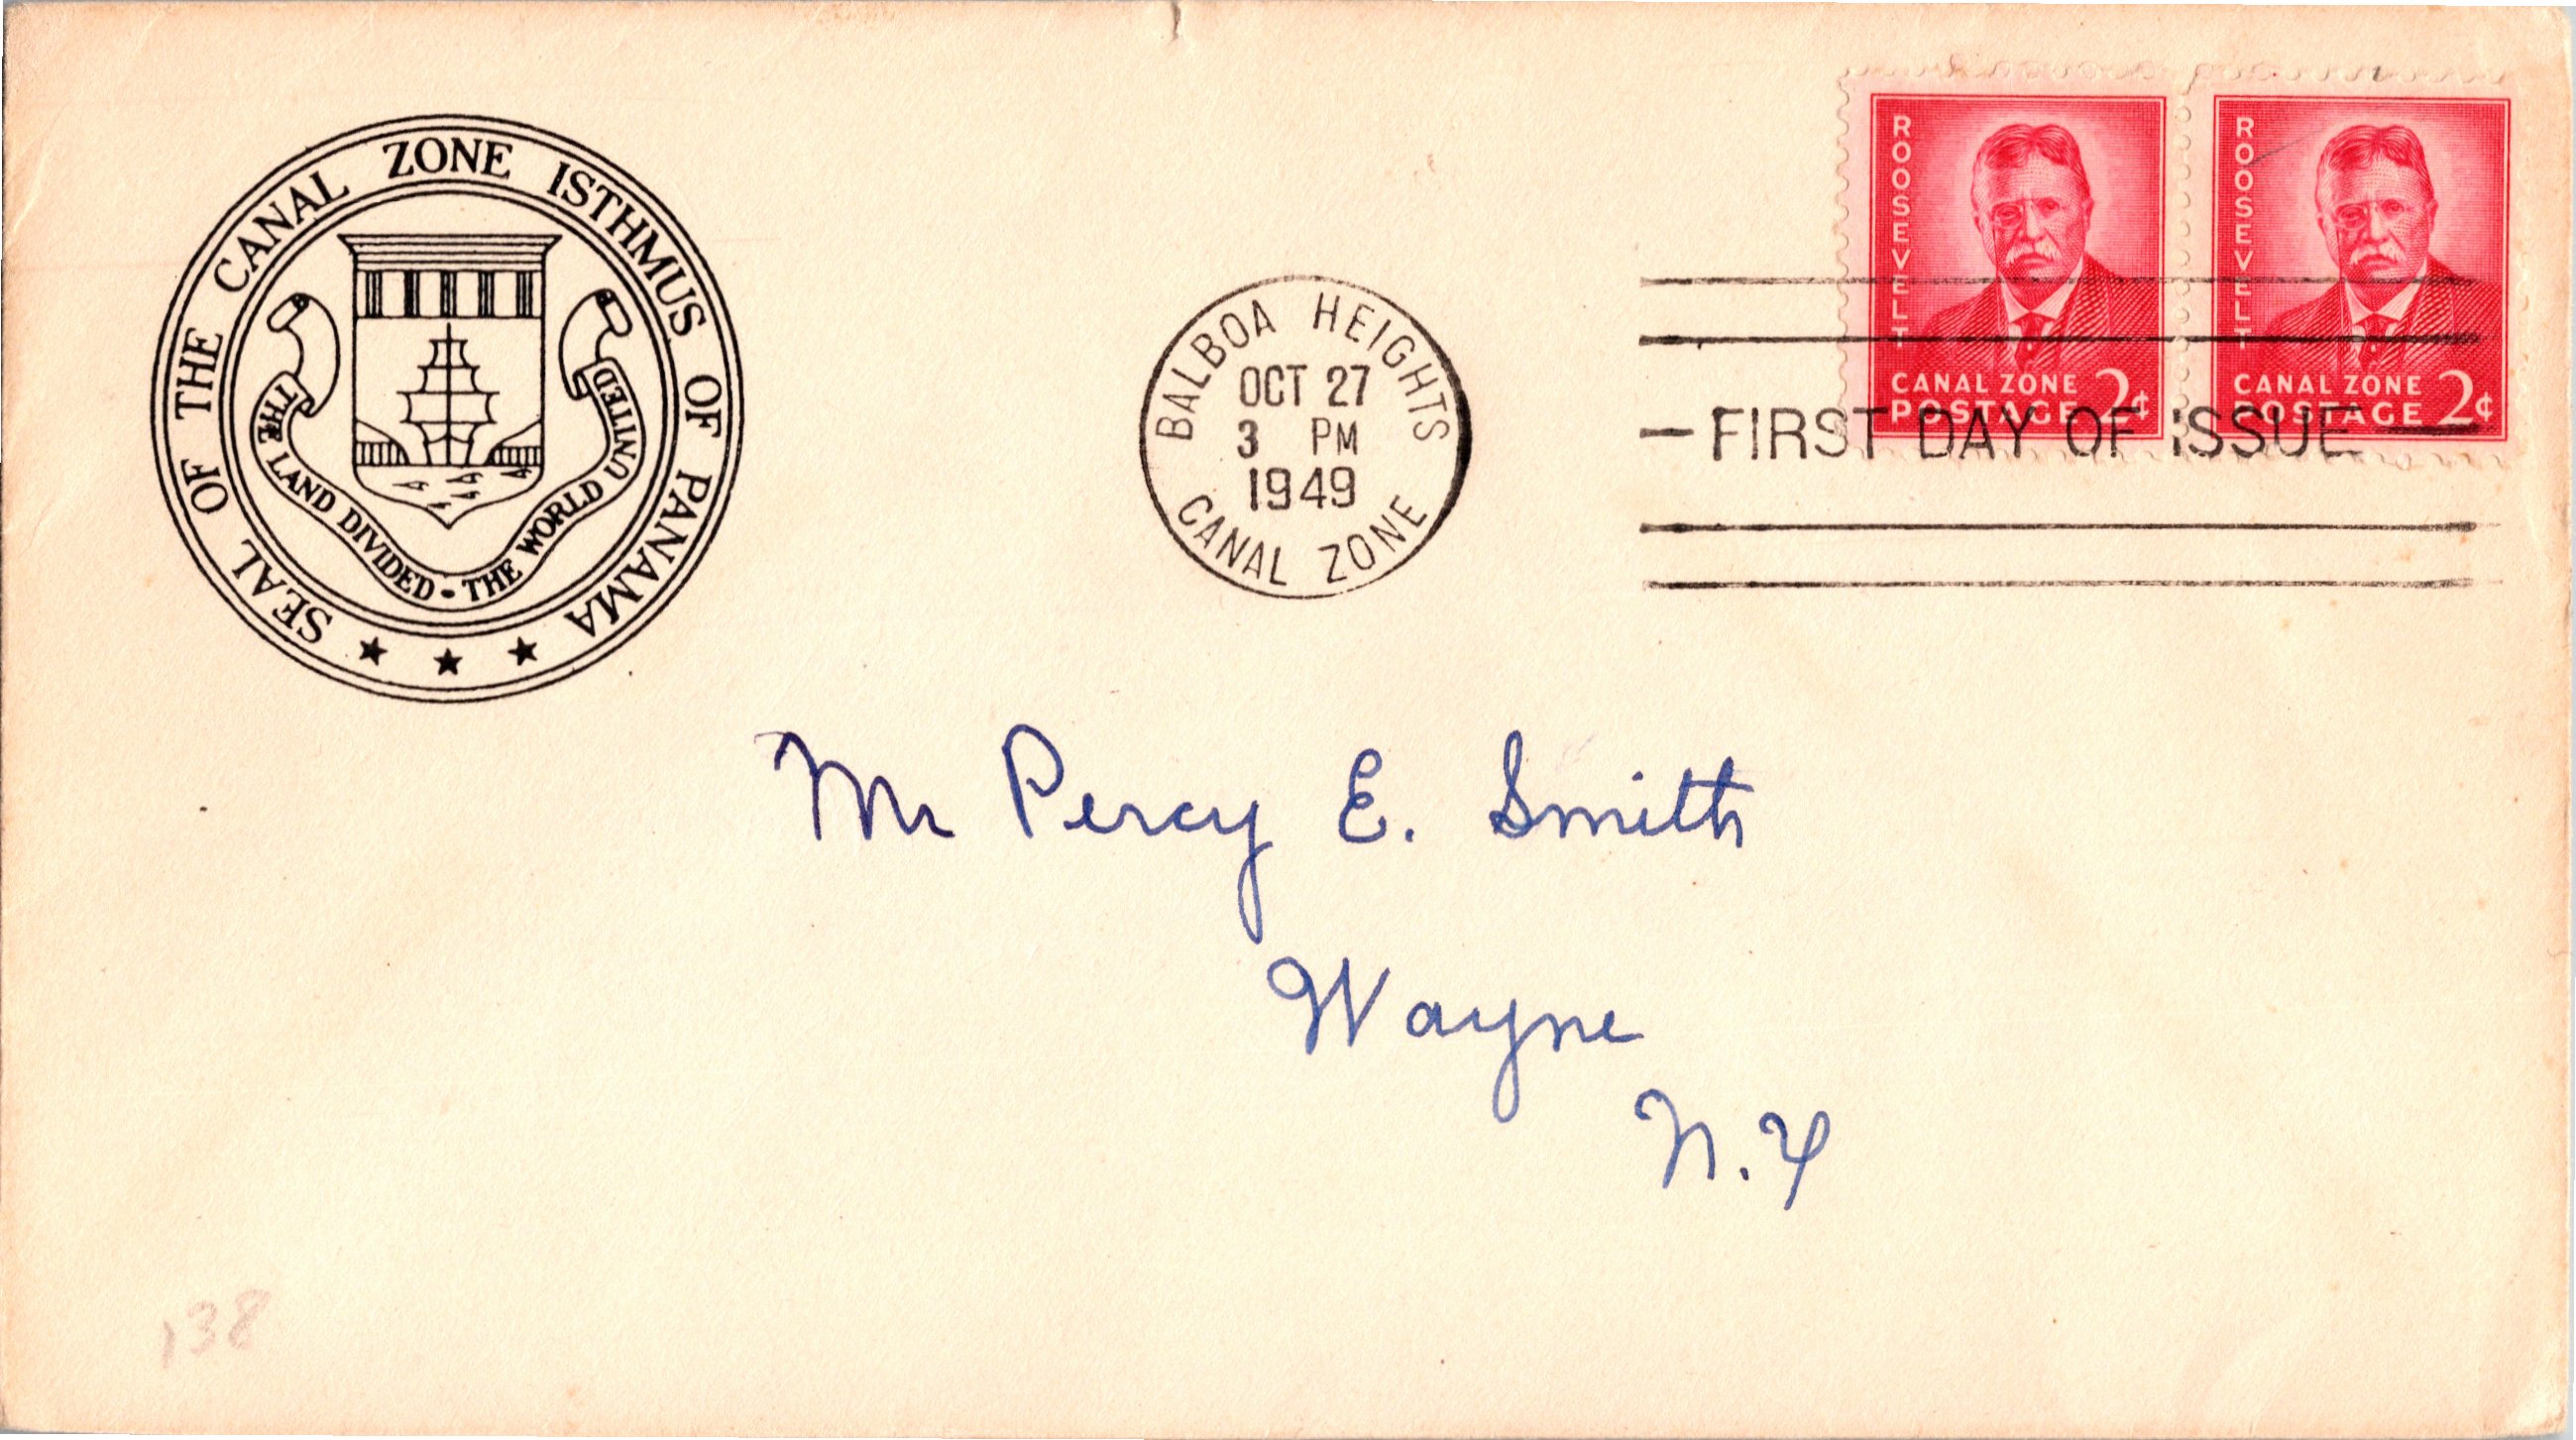 SEAL OF THE CANAL ZONE ISTHMUS OF PANAMA
THE LAND DIVIDED - THE WORLD UNITED
BALBOA HEIGHTS
OCT 27
3 PM
1949
CANAL ZONE
ROOSEVELT
CANAL ZONE
POSTAGE 2¢
ROOSEVELT
CANAL ZONE
POSTAGE 2¢
— FIRST DAY OF ISSUE —
Mr Percy E. Smith
Wayne
N.Y
138